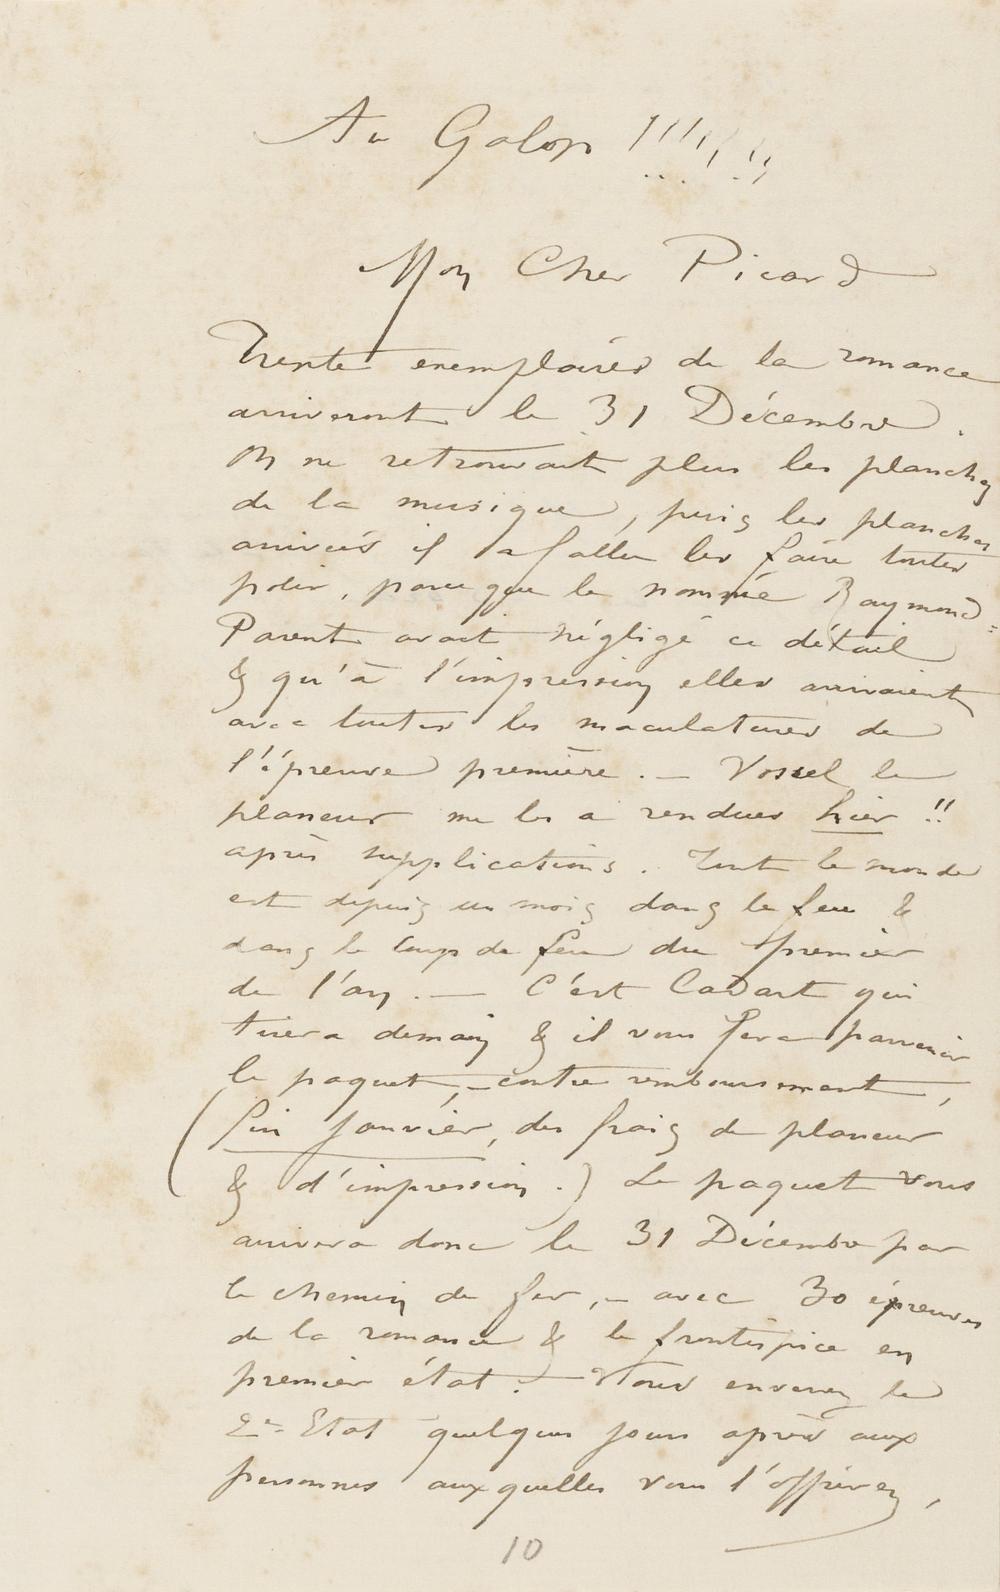 Au Galop !!!!!!!
Mon Cher Picard
Trente exemplaires de la romance
arriveront le 31 Décembre.
On ne retrouvait plus les planches
de la musique, puis les planches
arrivées il a fallu les faire toutes
polir, parce que le nommé Raymond-
Parent avait négligé ce détail
& qu'à l'impression elles arrivaient
avec toutes les maculatures de
l'épreuve première. — Vossel le
planeur me les a rendues hier !!
après supplications. Tout le monde
est depuis un mois dans le feu &
dans le coup de feu du premier
de l'an. — C'est Cadart qui
tirera demain & il vous fera parvenir
le paquet, — contre remboursement,
(fin Janvier, des frais de planeur
& d'impression.) Le paquet vous
arrivera donc le 31 Décembre par
le chemin de fer, — avec 30 épreuves
de la romance & le frontispice en
premier état. — Vous enverrez le
2me Etat quelques jours après aux
personnes auxquelles vous l'offrirez,
10